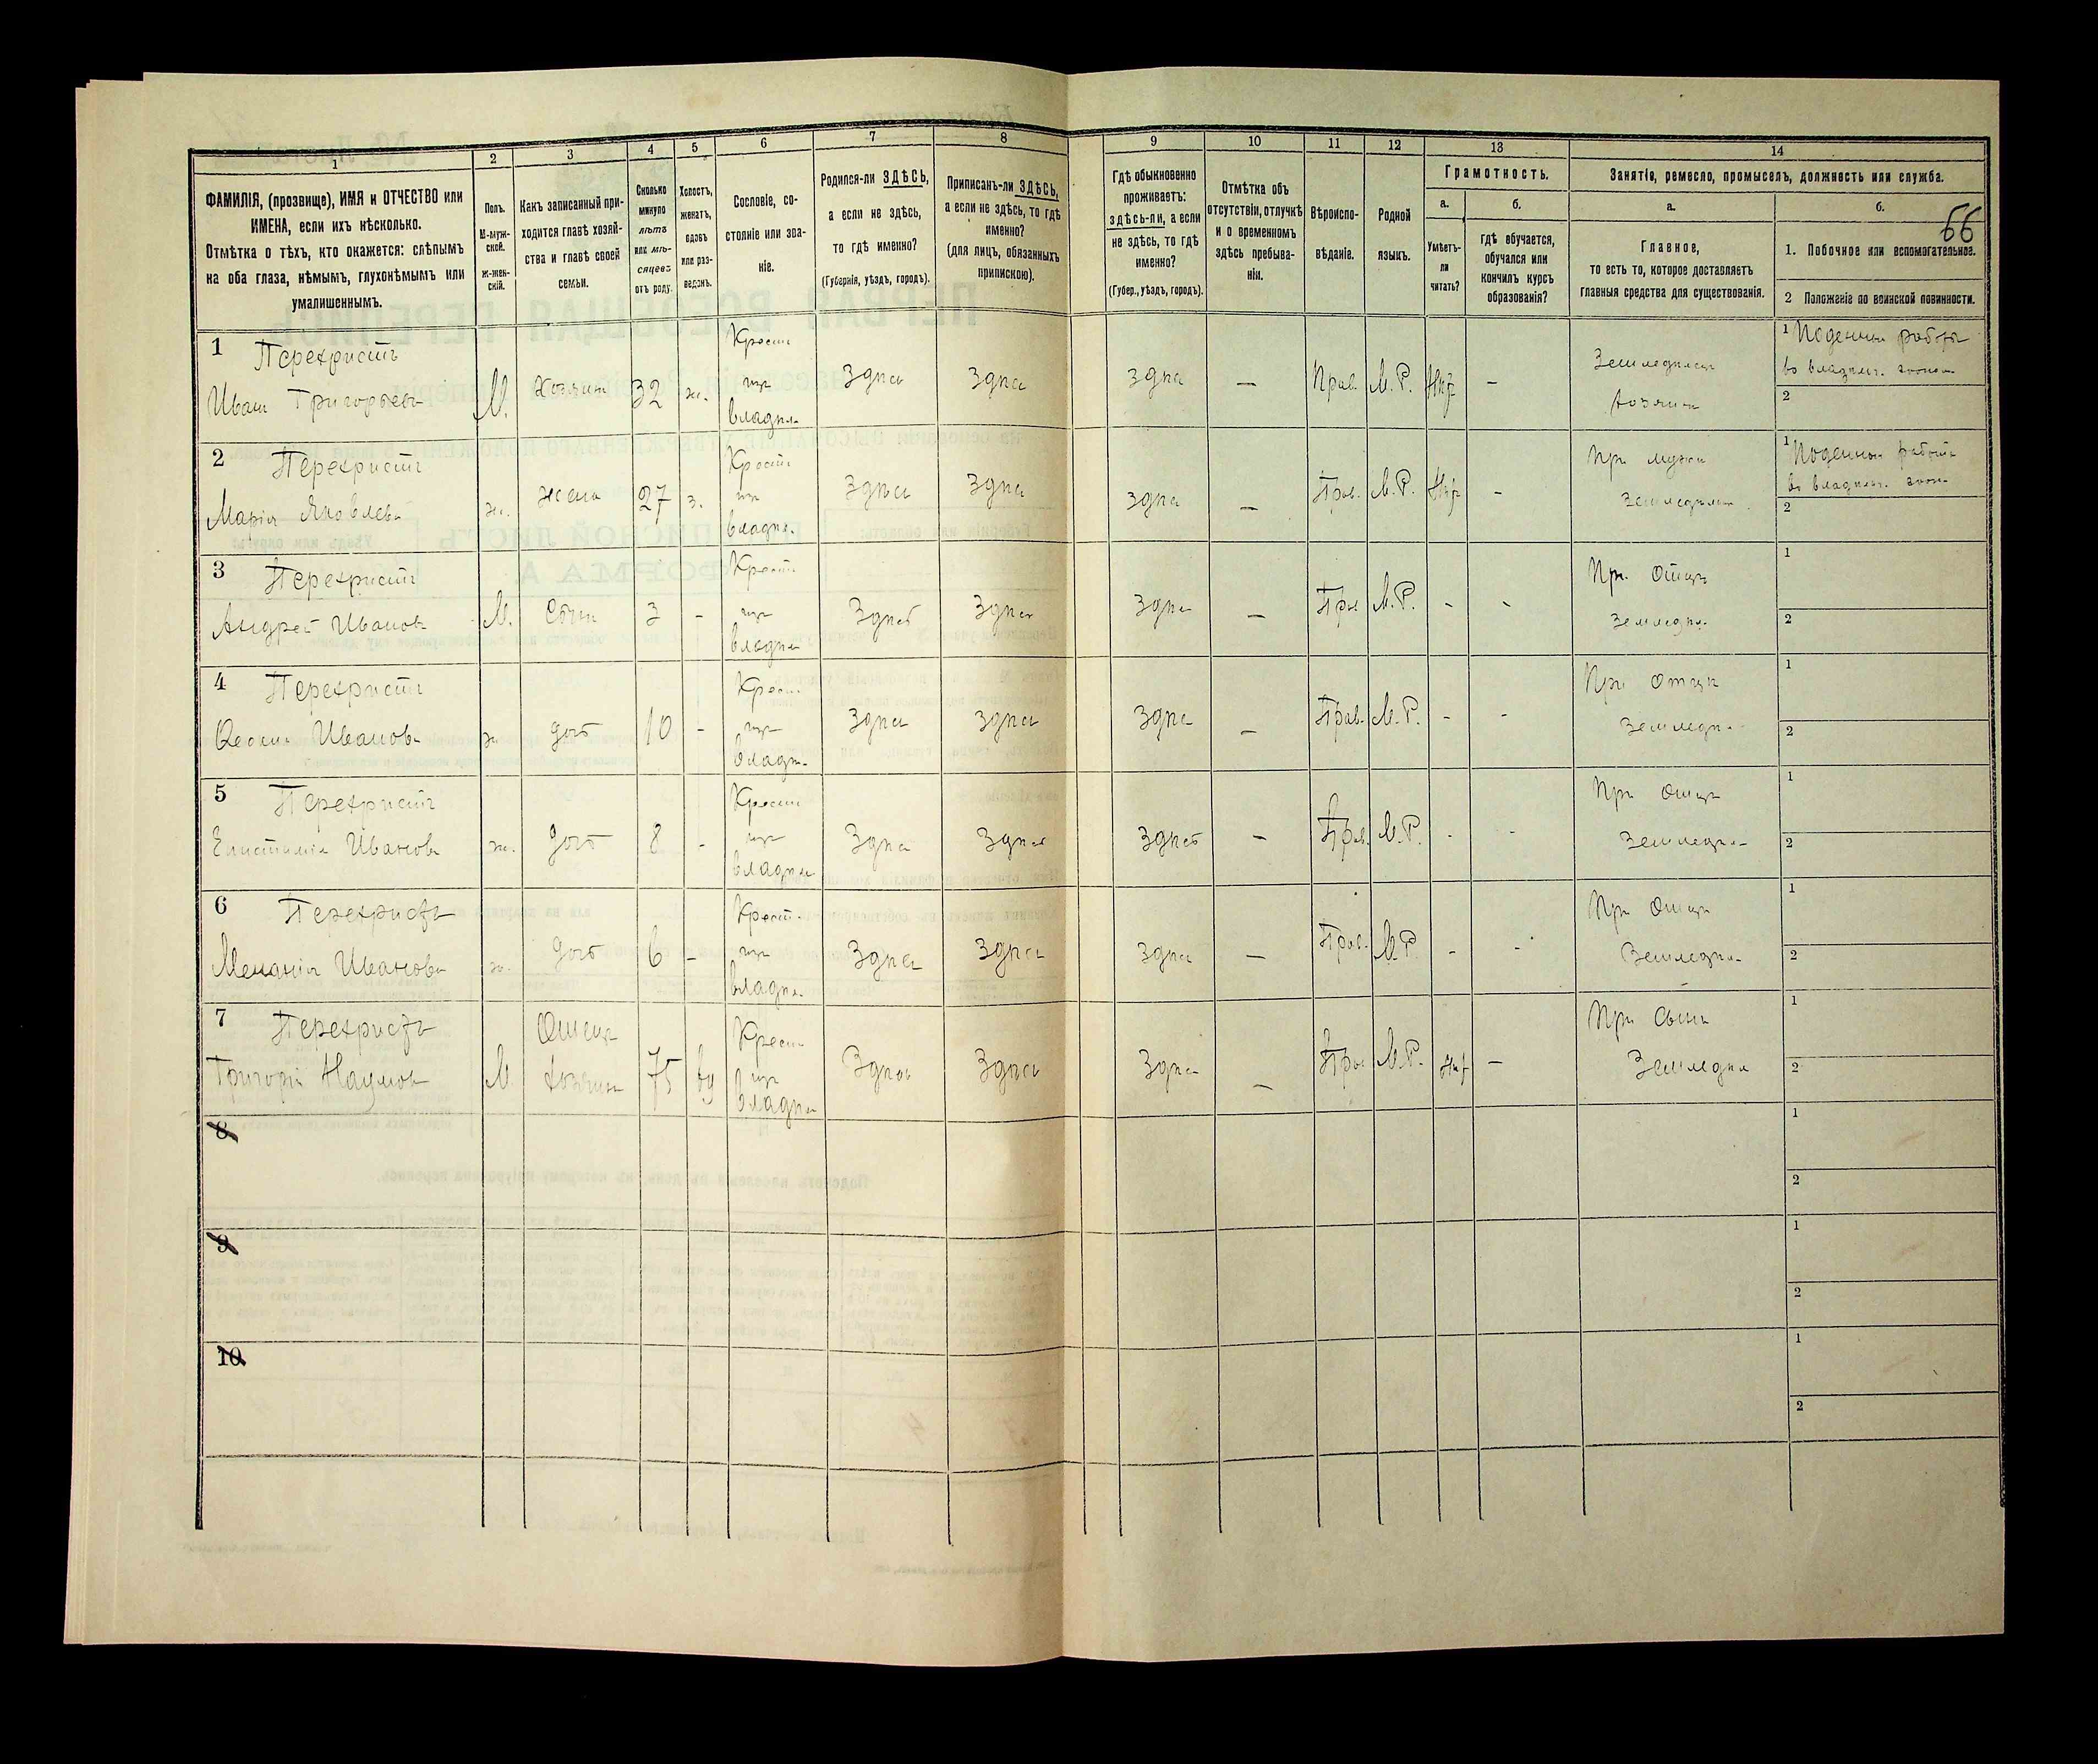 66
1 2 3 4 5 6 7 8 9 10 11 12 13 14
ФАМИЛІЯ, (прозвище), ИМЯ и ОТЧЕСТВО или
ИМЕНА, если ихъ нѣсколько.
Отмѣтка о тѣхъ, кто окажется: слѣпымъ
на оба глаза, нѣмымъ, глухонѣмымъ или
умалишеннымъ.
Полъ.
М-муж-
ской.
ж-жен-
скій.
Какъ записанный при-
ходится главѣ хозяй-
ства и главѣ своей
семьи.
Сколько
минуло
лѣтъ
или мѣ-
сяцевъ
отъ роду.
Холостъ,
женатъ,
вдовъ
или раз-
веденъ.
Сословіе, со-
стояніе или зва-
ніе.
Родился-ли ЗДѢСЬ,
а если не здѣсь,
то гдѣ именно?
(Губернія, уѣздъ, городъ).
Приписанъ-ли ЗДѢСЬ,
а если не здѣсь, то гдѣ
именно?
(для лицъ, обязанныхъ
припискою).
Гдѣ обыкновенно
проживаетъ:
здѣсь-ли, а если
не здѣсь, то гдѣ
именно?
(Губер., уѣздъ, городъ).
Отмѣтка объ
отсутствіи, отлучкѣ
и о временномъ
здѣсь пребыва-
ніи.
Вѣроиспо-
вѣданіе.
Родной
языкъ.
Грамотность.
а.
Умѣетъ-
ли
читать?
б.
гдѣ обучается,
обучался или
кончилъ курсъ
образованія?
Занятіе, ремесло, промыселъ, должность или служба.
а.
Главное,
то есть то, которое доставляетъ
главныя средства для существованія.
б.
1. Побочное или вспомогательное.
2 Положеніе по воинской повинности.
1 Перехристъ
Иванъ Григорьевъ
М. Хозяин 32 ж. Крест изъ владѣл. здѣсь здѣсь здѣсь — Прав. М.Р. Нѣт —
Земледѣлец хозяин
1 Поденныя работы
во владѣльч. эконом
2
2 Перехристъ
Марія Яковлева
ж. жена 27 з. Крест изъ владѣл. здѣсь здѣсь здѣсь — Прав. М.Р. Нѣт -
При мужѣ земледѣлие
1 Поденныя работы
во владѣльч. эконом
2
3 Перехристъ
Андрей Иванов
М. Сынъ 3 - Крест изъ владѣл здѣсь здѣсь здѣсь — Прав М.Р. - -
При отцѣ земледѣл.
1
2
4 Перехристъ
Иванова
ж доч 10 - Крест изъ владѣл. здѣсь здѣсь здѣсь — Прав. М.Р. - -
При отцѣ земледѣл.
1
2
5 Перехристъ
Епистимія Иванова
ж. доч 8 - Крест изъ владѣл здѣсь здѣсь здѣсь — Прав. М.Р. - -
При отцѣ земледѣл.
1
2
6 Перехристъ
Меланія Иванова
ж. доч 6 - Крест. изъ владѣл. здѣсь здѣсь здѣсь — Прав. М.Р. - -
При отцѣ земледѣл.
1
2
7 Перехристъ
Григорій Наумов
М Отецъ хозяина 75 вд Крест изъ владѣл здѣсь здѣсь здѣсь — Прав М.Р. Нѣт —
При сынѣ Земледѣл
1
2
8
1
2
9
1
2
10
1
2